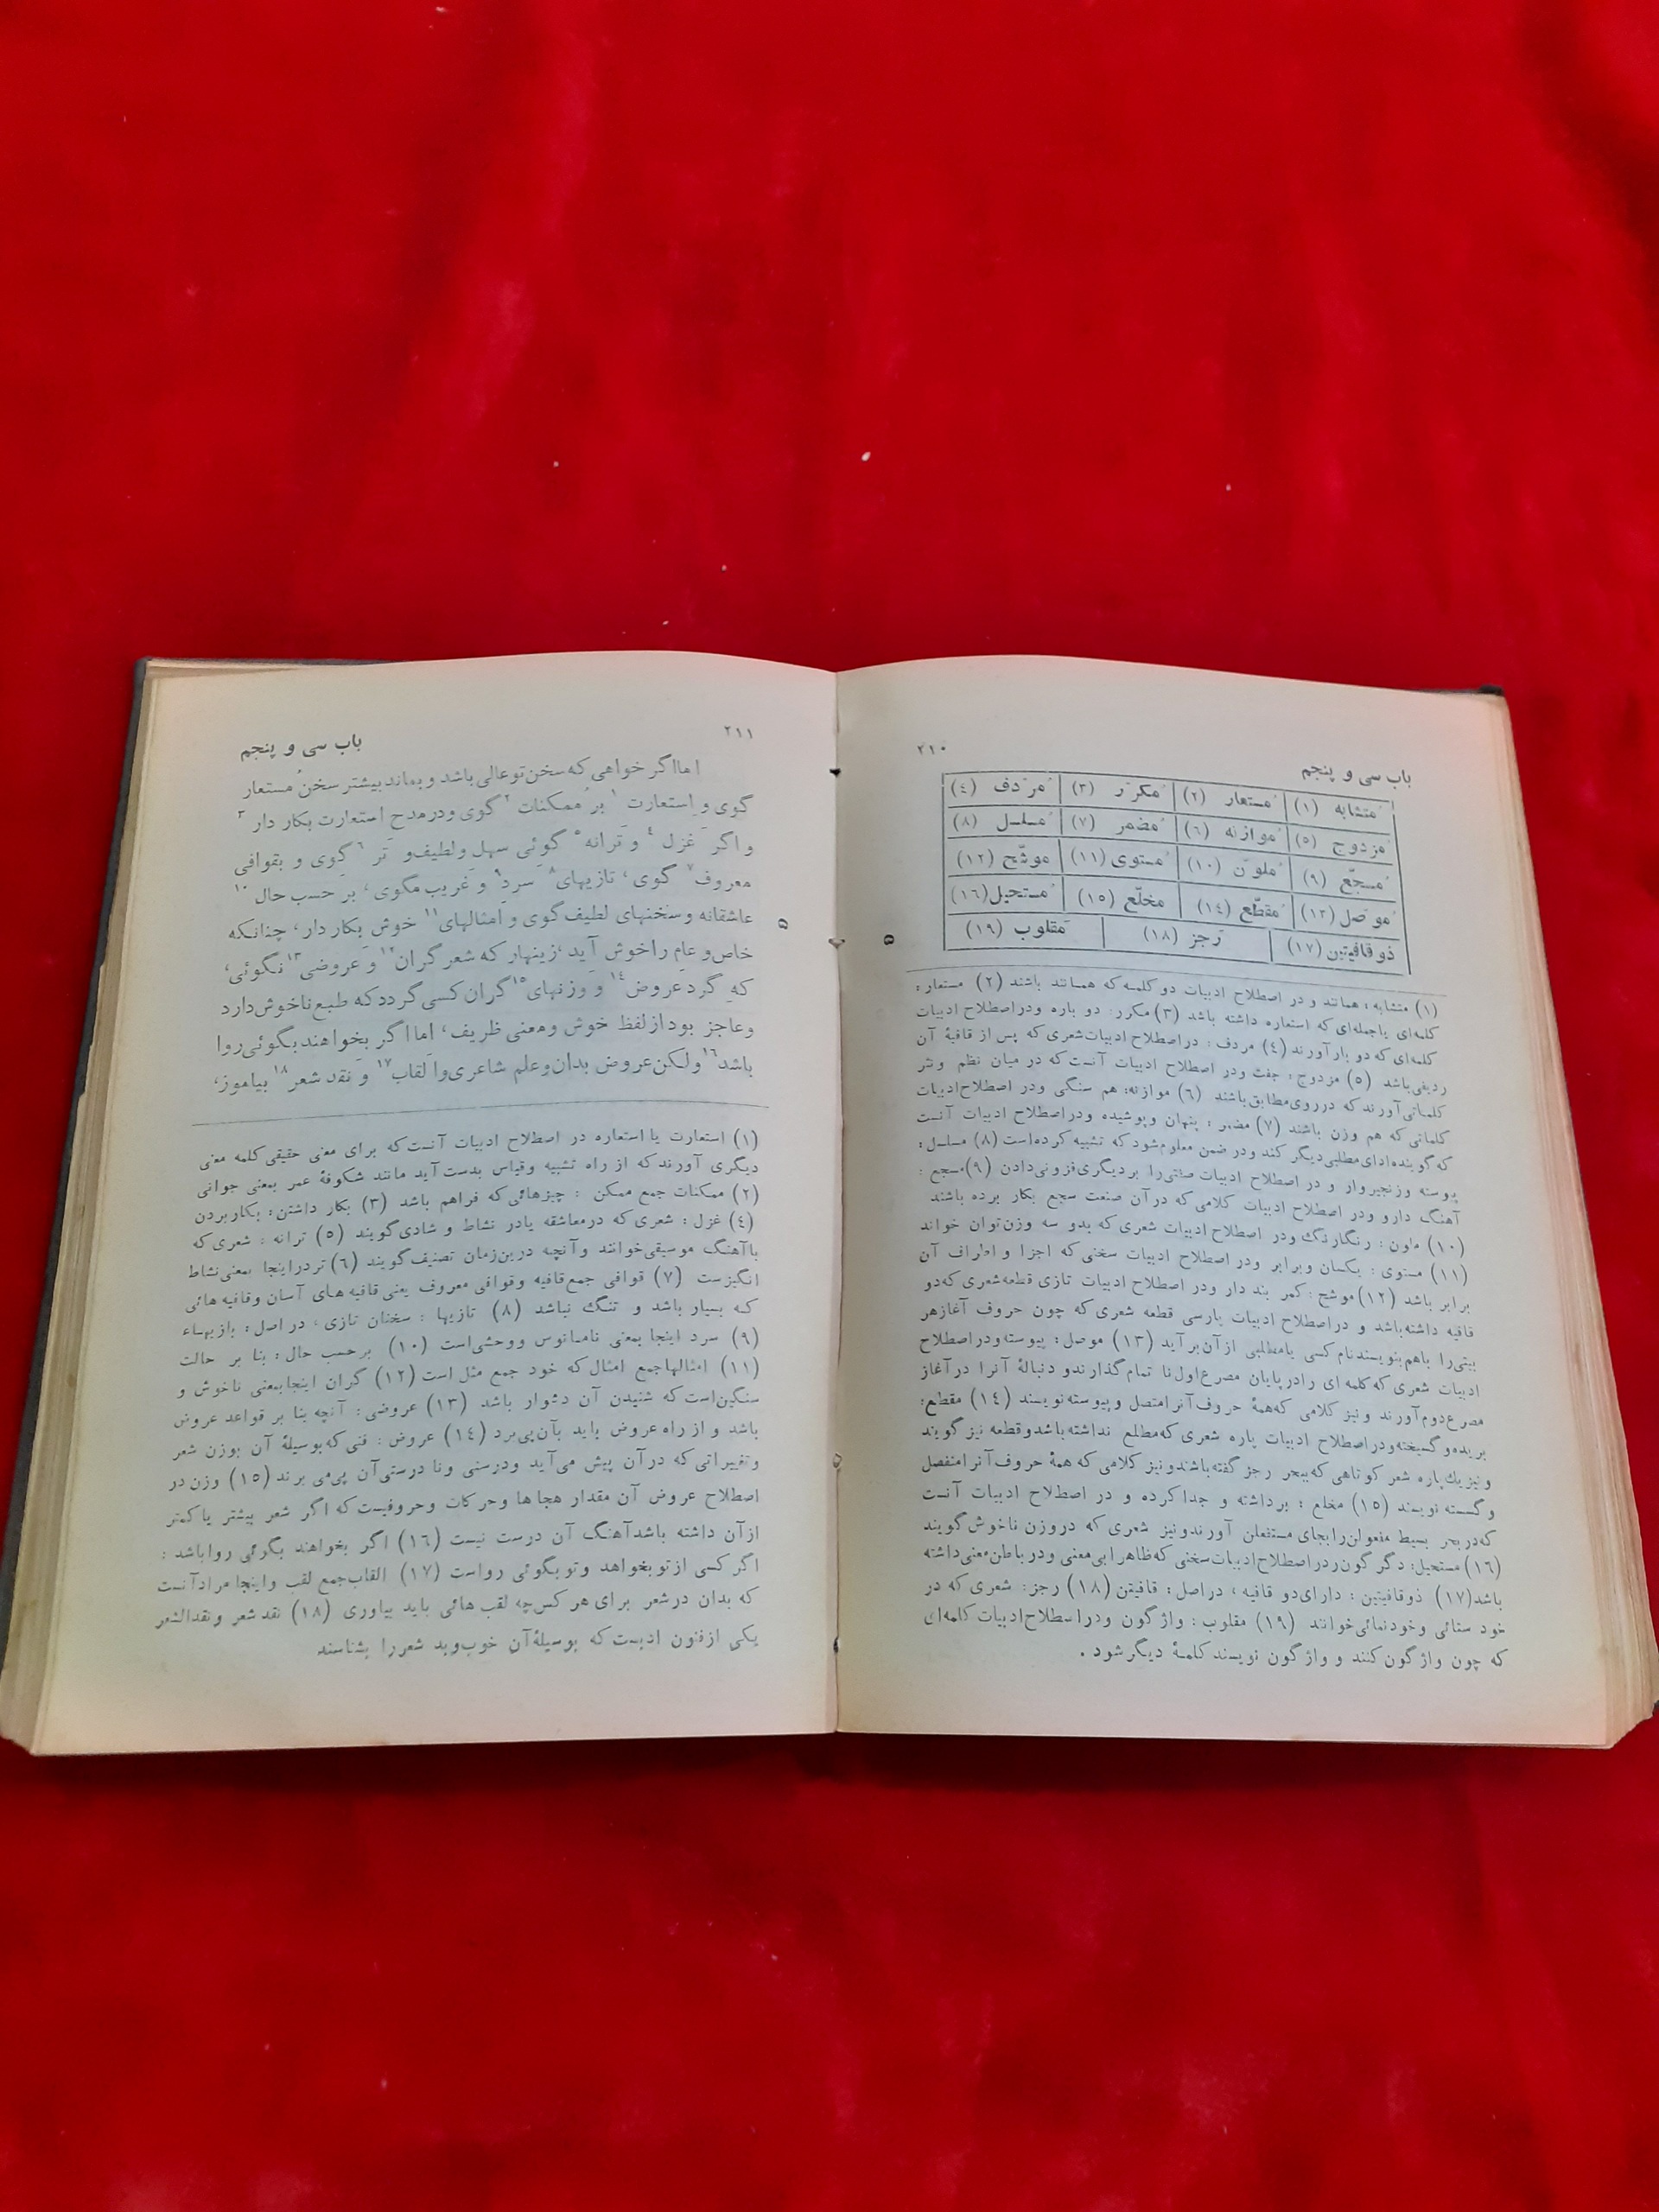 باب سی و پنجم
۲۱۰
مُتشابه (۱) مُستعار (۲) مُکرَّر (۳) مُردَّف (٤)
مُزدوج (٥) مُوازنه (٦) مُضمر (۷) مُسلسل (۸)
مُسجّع (۹) مُلوّن (۱۰) مُستوی (۱۱) موشّح (۱۲)
مُوصّل (۱۳) مُقطّع (۱٤) مخلّع (۱٥) مُستحیل (۱٦)
ذوقافیتین (۱۷) رَجز (۱۸) مَقلوب (۱۹)
(۱) متشابه: همانند و در اصطلاح ادبیات دو کلمه که همانند باشند (۲) مستعار:
کلمه‌ای یا جمله‌ای که استعاره داشته باشد (۳) مکرر: دو باره ودراصطلاح ادبیات
کلمه‌ای که دو بار آورند (٤) مردف: دراصطلاح ادبیات شعری که پس از قافیهٔ آن
ردیفی باشد (٥) مزدوج: جفت ودر اصطلاح ادبیات آنست که در میان نظم ونثر
کلماتی آورند که در روی مطابق باشند (٦) موازنه: هم سنگی ودر اصطلاح ادبیات
کلماتی که هم وزن باشند (۷) مضمر: پنهان وپوشیده ودراصطلاح ادبیات آنست
که گوینده ادای مطلبی دیگر کند ودر ضمن معلوم شود که تشبیه کرده‌است (۸) مسلسل:
پیوسته وزنجیروار و در اصطلاح ادبیات صفتی را بر دیگری فزونی دادن (۹) مسجع:
آهنگ دار و ودر اصطلاح ادبیات کلامی که در آن صنعت سجع بکار برده باشند
(۱۰) ملون: رنگارنگ ودر اصطلاح ادبیات شعری که بدو سه وزن توان خواند
(۱۱) مستوی: یکسان وبرابر ودر اصطلاح ادبیات سخنی که اجزا و اطراف آن
برابر باشد (۱۲) موشح: کمر بند دار ودر اصطلاح ادبیات تازی قطعه شعری که دو
قافیه داشته باشد و دراصطلاح ادبیات پارسی قطعه شعری که چون حروف آغاز هر
بیتی را باهم بنویسند نام کسی یا مطلبی از آن بر آید (۱۳) موصل: پیوسته ودر اصطلاح
ادبیات شعری که کلمه ای را در پایان مصرع اول نا تمام گذارند و دنبالهٔ آنرا در آغاز
مصرع دوم آورند و نیز کلامی که همهٔ حروف آنرا متصل و پیوسته نویسند (۱٤) مقطع:
بریده وگسیخته ودراصطلاح ادبیات پاره شعری که مطلع نداشته باشد و قطعه نیز گویند
ونیز یك پاره شعر کوتاهی که ببحر رجز گفته باشند و نیز کلامی که همهٔ حروف آنرا منفصل
و گسسته نویسند (۱٥) مخلع: برداشته و جدا کرده و در اصطلاح ادبیات آنست
که در بحر بسیط مفعولن را بجای مستفعلن آورند و نیز شعری که در وزن ناخوش گویند
(۱٦) مستحیل: دگر گون ودر اصطلاح ادبیات سخنی که ظاهرا بی معنی و در باطن معنی داشته
باشد (۱۷) ذوقافیتین: دارای دو قافیه، در اصل: قافیتن (۱۸) رجز: شعری که در
خود ستائی وخودنمائی خوانند (۱۹) مقلوب: واژ گون ودر اصطلاح ادبیات کلمه‌ای
که چون واژ گون کنند و واژ گون نویسند کلمهٔ دیگر شود.
باب سی و پنجم
۲۱۱
اما اگر خواهی که سخن تو عالی باشد و بماند بیشتر سخن مُستعار
گوی و اِستعارت ۱ بر مُمکنات ۲ گوی ودر مدح استعارت بکار دار ۳
و اگر غزل ٤ و ترانه ٥ گوئی سهل ولطیف و تر ٦ گوی و بقوافی
معروف ۷ گوی، تازیهای ۸ سرد ۹ و غریب مگوی، بر حسب حال ۱۰
عاشقانه و سخنهای لطیف گوی و اَمثالهای ۱۱ خوش بکار دار، چنانکه
خاص و عام را خوش آید، زینهار که شعر گران ۱۲ و عروضی ۱۳ نگوئی،
که گرد عروض ۱٤ و وزنهای ۱٥ گران کسی گردد که طبع ناخوش دارد
و عاجز بود از لفظ خوش ومعنی ظریف، اما اگر بخواهند بگوئی روا
باشد ۱٦ ولکن عروض بدان و علم شاعری و اَلقاب ۱۷ و نقد شعر ۱۸ بیاموز،
(۱) استعارت یا استعاره در اصطلاح ادبیات آنست که برای معنی حقیقی کلمه معنی
دیگری آورند که از راه تشبیه وقیاس بدست آید مانند شکوفهٔ عمر بمعنی جوانی
(۲) ممکنات جمع ممکن: چیزهائی که فراهم باشد (۳) بکار داشتن: بکار بردن
(٤) غزل: شعری که در معاشقه یا در نشاط و شادی گویند (٥) ترانه: شعری که
با آهنگ موسیقی خوانند و آنچه درین زمان تصنیف گویند (٦) تر در اینجا بمعنی نشاط
انگیزست (۷) قوافی جمع قافیه وقوافی معروف یعنی قافیه های آسان وقافیه هائی
که بسیار باشد و تنگ نباشد (۸) تازیها: سخنان تازی، در اصل: بازیهاء
(۹) سرد اینجا بمعنی نامانوس ووحشی است (۱۰) بر حسب حال: بنا بر حالت
(۱۱) امثالها جمع امثال که خود جمع مثل است (۱۲) گران اینجا بمعنی ناخوش و
سنگین است که شنیدن آن دشوار باشد (۱۳) عروضی: آنچه بنا بر قواعد عروض
باشد و از راه عروض باید بآن پی برد (۱٤) عروض: فنی که بوسیلهٔ آن بوزن شعر
وتغییراتی که در آن پیش می‌آید ودرستی ونا درستی آن پی می برند (۱٥) وزن در
اصطلاح عروض آن مقدار هجاها وحرکات وحروفیست که اگر شعر بیشتر یا کمتر
از آن داشته باشد آهنگ آن درست نیست (۱٦) اگر بخواهند بگوئی روا باشد:
اگر کسی از تو بخواهد و تو بگوئی رواست (۱۷) القاب جمع لقب واینجا مراد آنست
که بدان در شعر برای هر کس چه لقب هائی باید بیاوری (۱۸) نقد شعر و نقد الشعر
یکی از فنون ادبست که بوسیلهٔ آن خوب وبد شعر را بشناسند